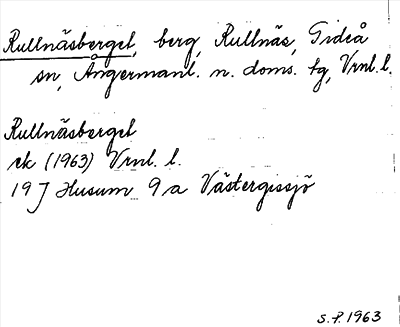 Rullnäsberget, berg, Rullnäs, Gideå
sn, Ångermanl. n. doms. tg, Vrnl. l.
Rullnäsberget
ek (1963) Vrnl. l.
19 J Husum 9a Västergissjö
S.P. 1963